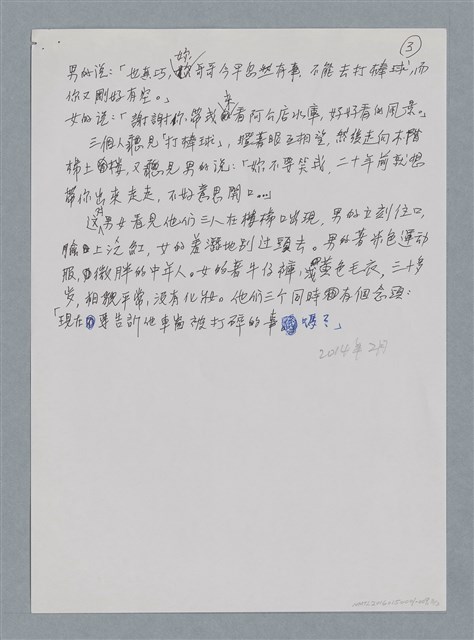 ③
男的说:「也真巧,妳哥哥今早忽然有事,不能去打棒球,而
你又剛好有空。」
女的说:「謝謝你带我來看阿公店水庫,好好看的風景。」
三個人聽見「打棒球」,瞪著眼互相望,然後走向木階
梯上樓,又聽見男的说:「妳不要笑我,二十年前就想
帶你出來走走,不好意思開口…」
這對男女看見他們三人在樓梯口出現,男的立刻住口,
臉上泛紅,女的羞澀地別过頭去。男的著 色運動
服,微胖的中年人。女的著牛仔褲,黃色毛衣,三十多
岁,相貌平常,沒有化妝。他們三個同時有個念頭:
「現在要告訴他車窗被打碎的事嗎?」
2014年2月